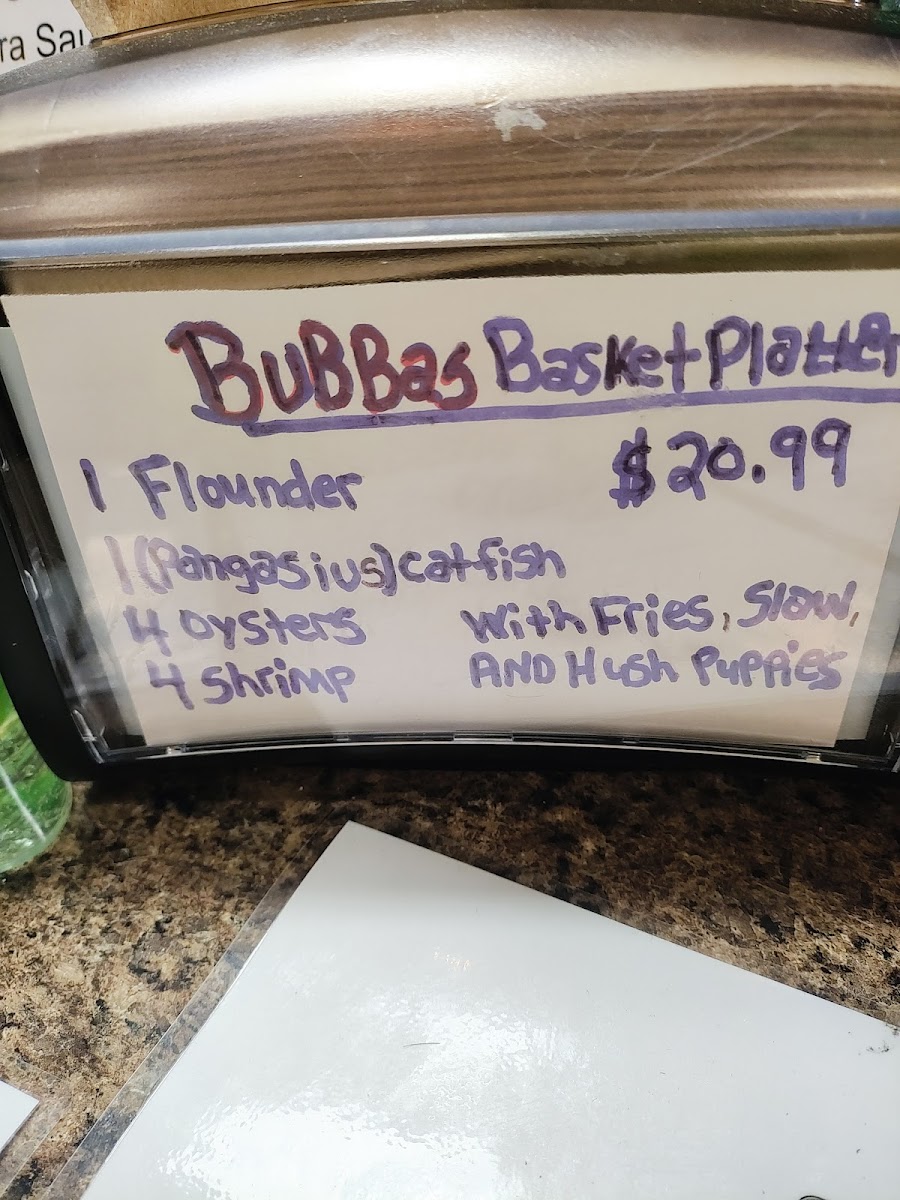 ra Sau
BuBBas Basket Platter
$20.99
1 Flounder
1 (Pangasius) catfish
4 oysters
4 shrimp
With Fries, Slaw,
AND Hush Puppies